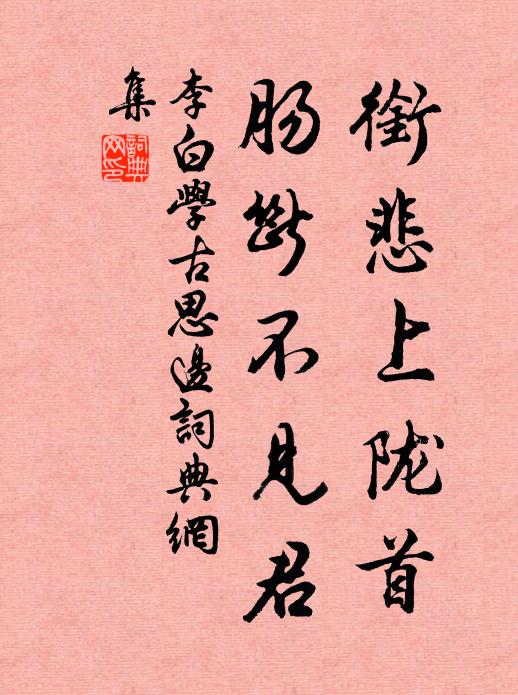 銜悲上陇首
肠斷不見君
李白學古思邊詞典網
集
詞典
网印